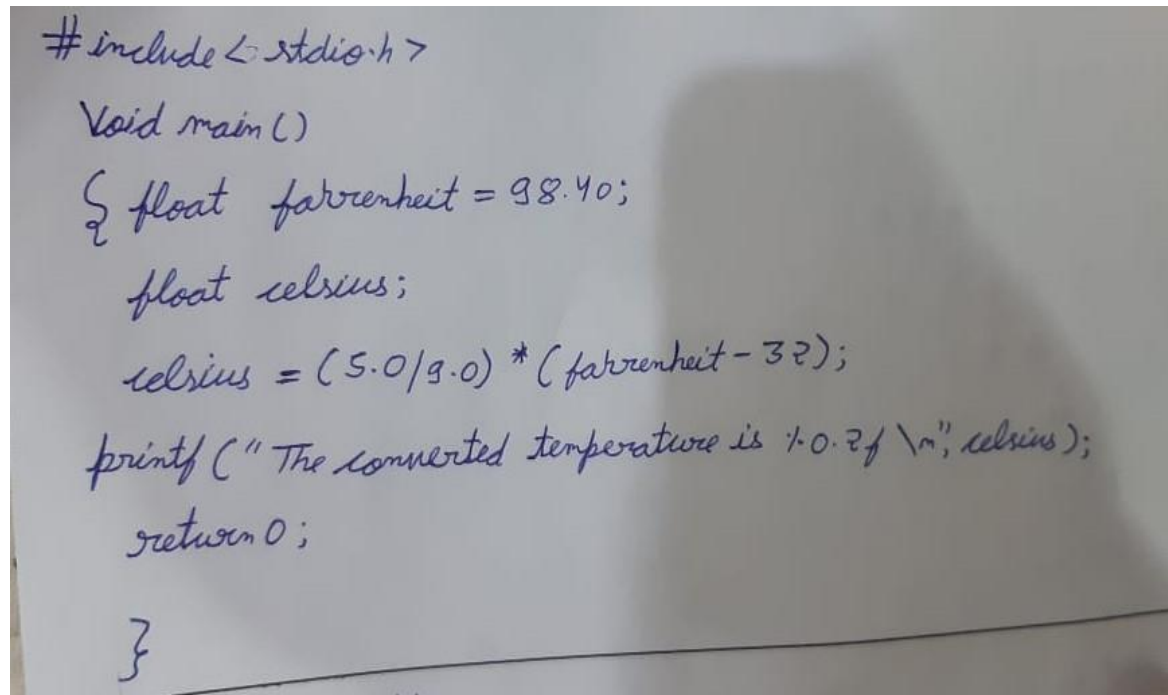 #include< stdio.h>
Void main()
{ float fahrenheit = 98.40;
float celsius;
celsius = (5.0/9.0) * (fahrenheit - 32);
printf (" The converted temperature is %0.2f \n", celsius);
return 0;
}